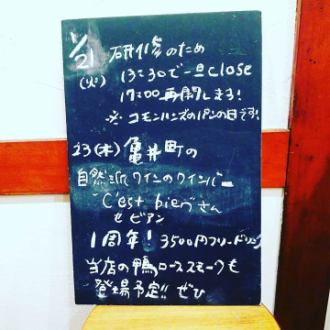 1/21 研修のため
(火) 13:30で一旦close
17:00再開します!
※ コモンハンズのパンの日です!
23(木) 亀井町の
自然派ワインのワインバー
"C'est bien"さん
セビアン
1周年! 3500円フリードリンク
当店の鴨ローススモークも
登場予定!! ぜひ